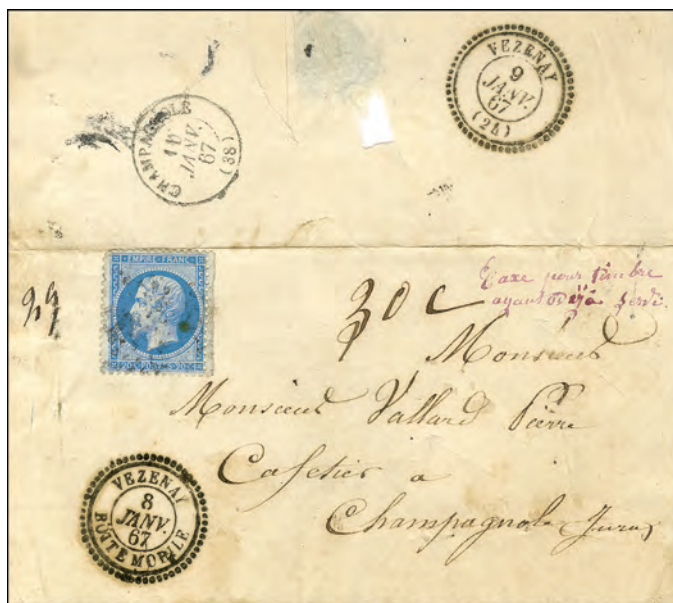 VEZENAY
9
JANV.
67
(24)
CHAMPAGNOLE
JANV.
67
(38)
EMPIRE FRANC
20 C POSTES 20 C
30 C
Taxe pour timbre
ayant déjà servi.
Monsieur
Monsieur Vallard Pierre
Cafetier a
Champagnole Jura
VEZENAY
8
JANV.
67
BOITE MOBILE